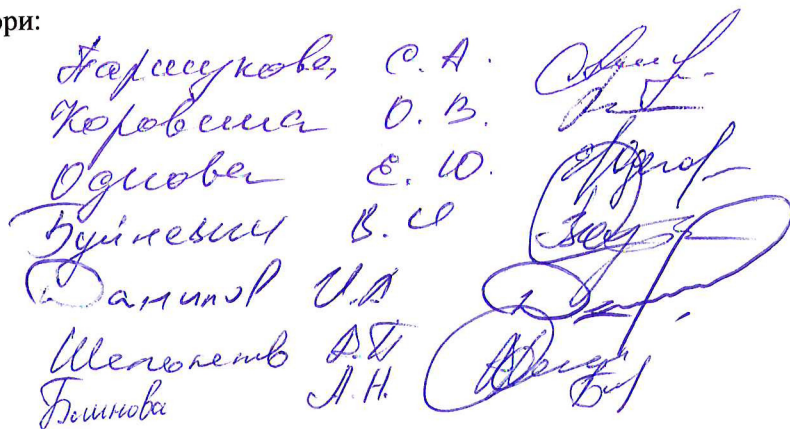 ори:
Паршукова С. А.
Коровина О. В.
Одиова Е. Ю.
Буйневич В. И
Данилов И.А
А.П
Блинова А.Н.